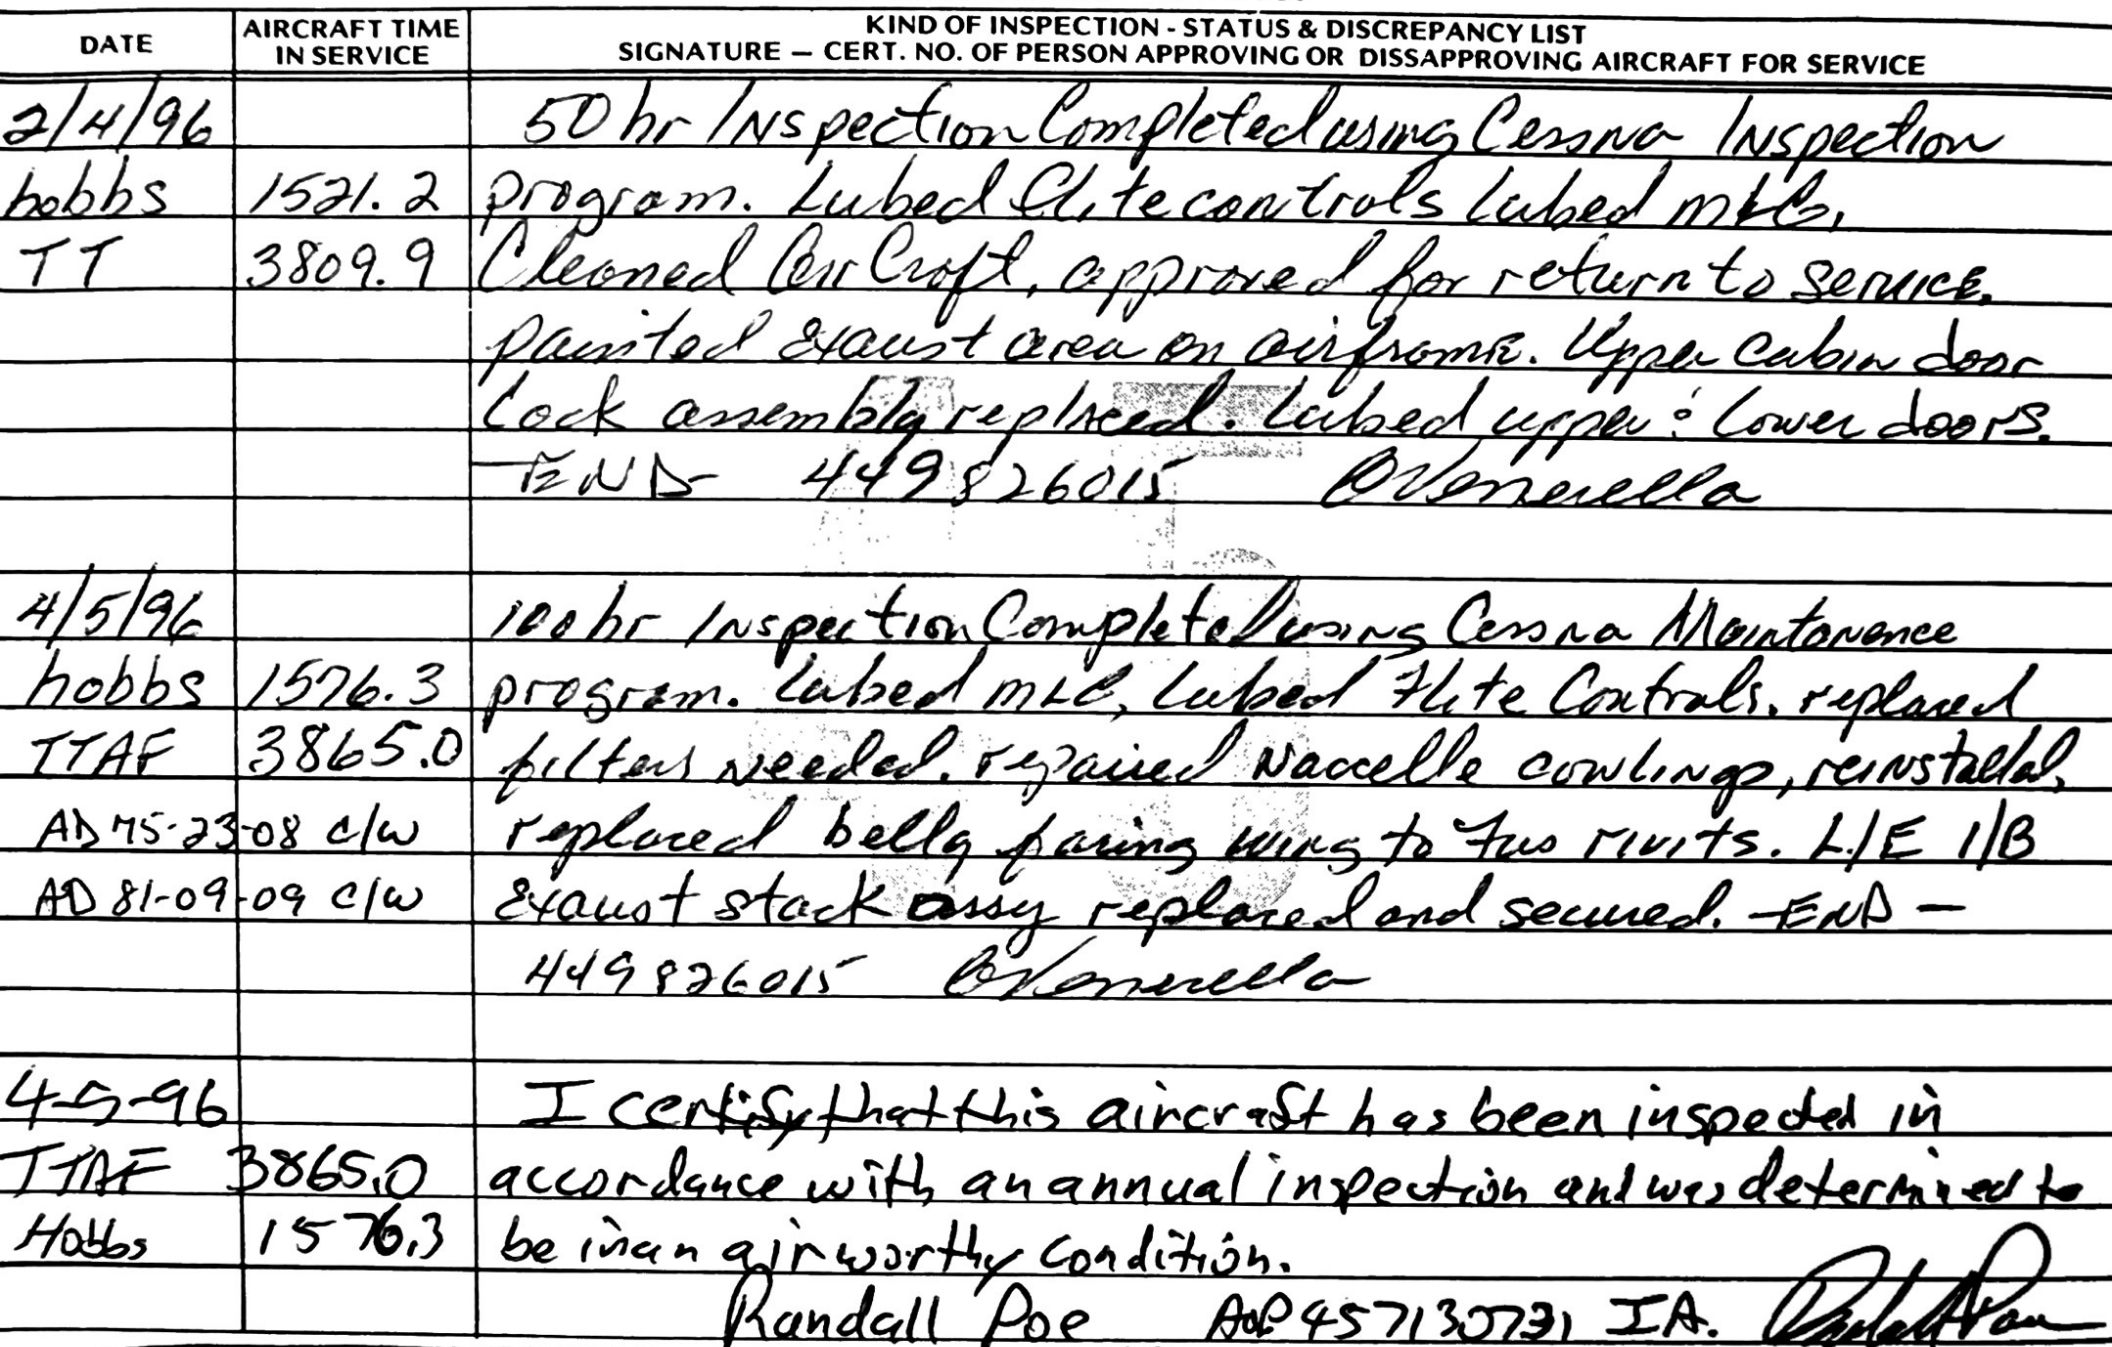 DATE AIRCRAFT TIME IN SERVICE KIND OF INSPECTION - STATUS & DISCREPANCY LIST
SIGNATURE — CERT. NO. OF PERSON APPROVING OR DISSAPPROVING AIRCRAFT FOR SERVICE
2/4/96 50 hr Inspection Completed using Cessna Inspection
hobbs 1521.2 program. Lubed flite controls Lubed MLG,
TT 3809.9 Cleaned Air Craft, approved for return to service.
painted exaust area on airframe. Upper cabin door
Lock assembly replaced. Lubed upper & lower doors.
—END— 449826015 Venerella
4/5/96 100 hr Inspection Completed using Cessna Maintanence
hobbs 1576.3 program. Lubed MLG, Lubed Flite Controls. replaced
TTAF 3865.0 filters needed. repaired Naccelle cowlings, reinstalled,
AD 75-23-08 c/w replaced belly faring wing to fus rivits. L/E I/B
AD 81-09-09 c/w Exaust stack assy replaced and secured. —END—
449826015 Venerella
4-5-96 I certify that this aircraft has been inspected in
TTAF 3865.0 accordance with an annual inspection and was determined to
Hobbs 1576.3 be in an airworthy condition.
Randall Poe A&P 457130731 IA.